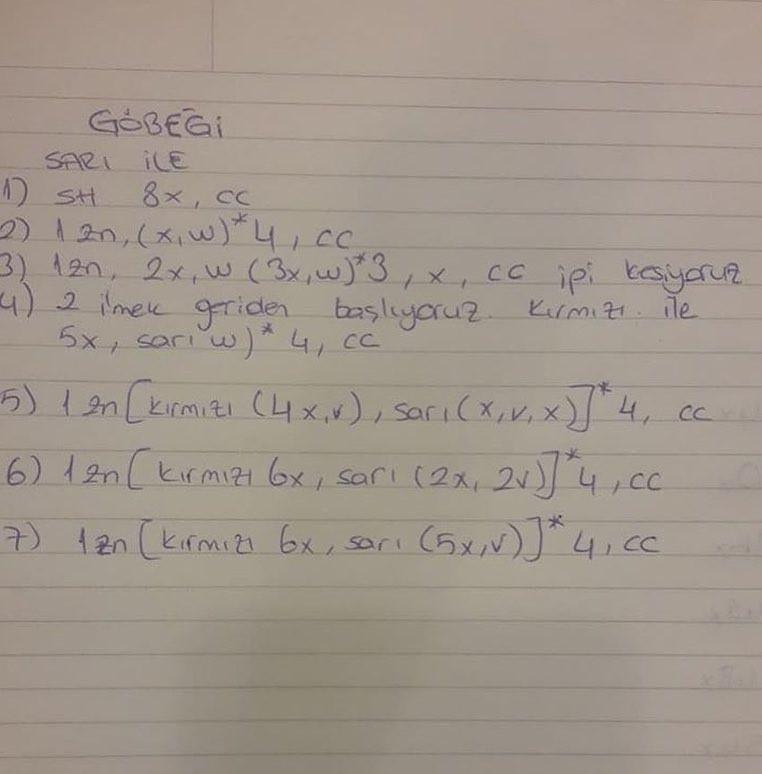 GÖBEĞİ
SARI İLE
1) SH 8x, cc
2) 1 zn, (x,w)*4, cc
3) 1zn, 2x, w (3x,w)*3, x, cc ipi kesiyoruz
4) 2 ilmek geriden başlıyoruz. Kırmızı. ile
5x, sarı w)* 4, cc
5) 1 zn [kırmızı (4x,v), sarı (x,v,x)]*4, cc
6) 1 zn [kırmızı 6x, sarı (2x, 2v)]*4, cc
7) 1zn [kırmızı 6x, sarı (5x,v)]* 4, cc